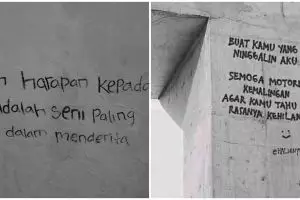 harapan kepada
adalah seni paling
dalam menderita
BUAT KAMU YANG
NINGGALIN AKU
SEMOGA MOTORM
KEMALINGAN
AGAR KAMU TAHU
RASANYA KEHILAN